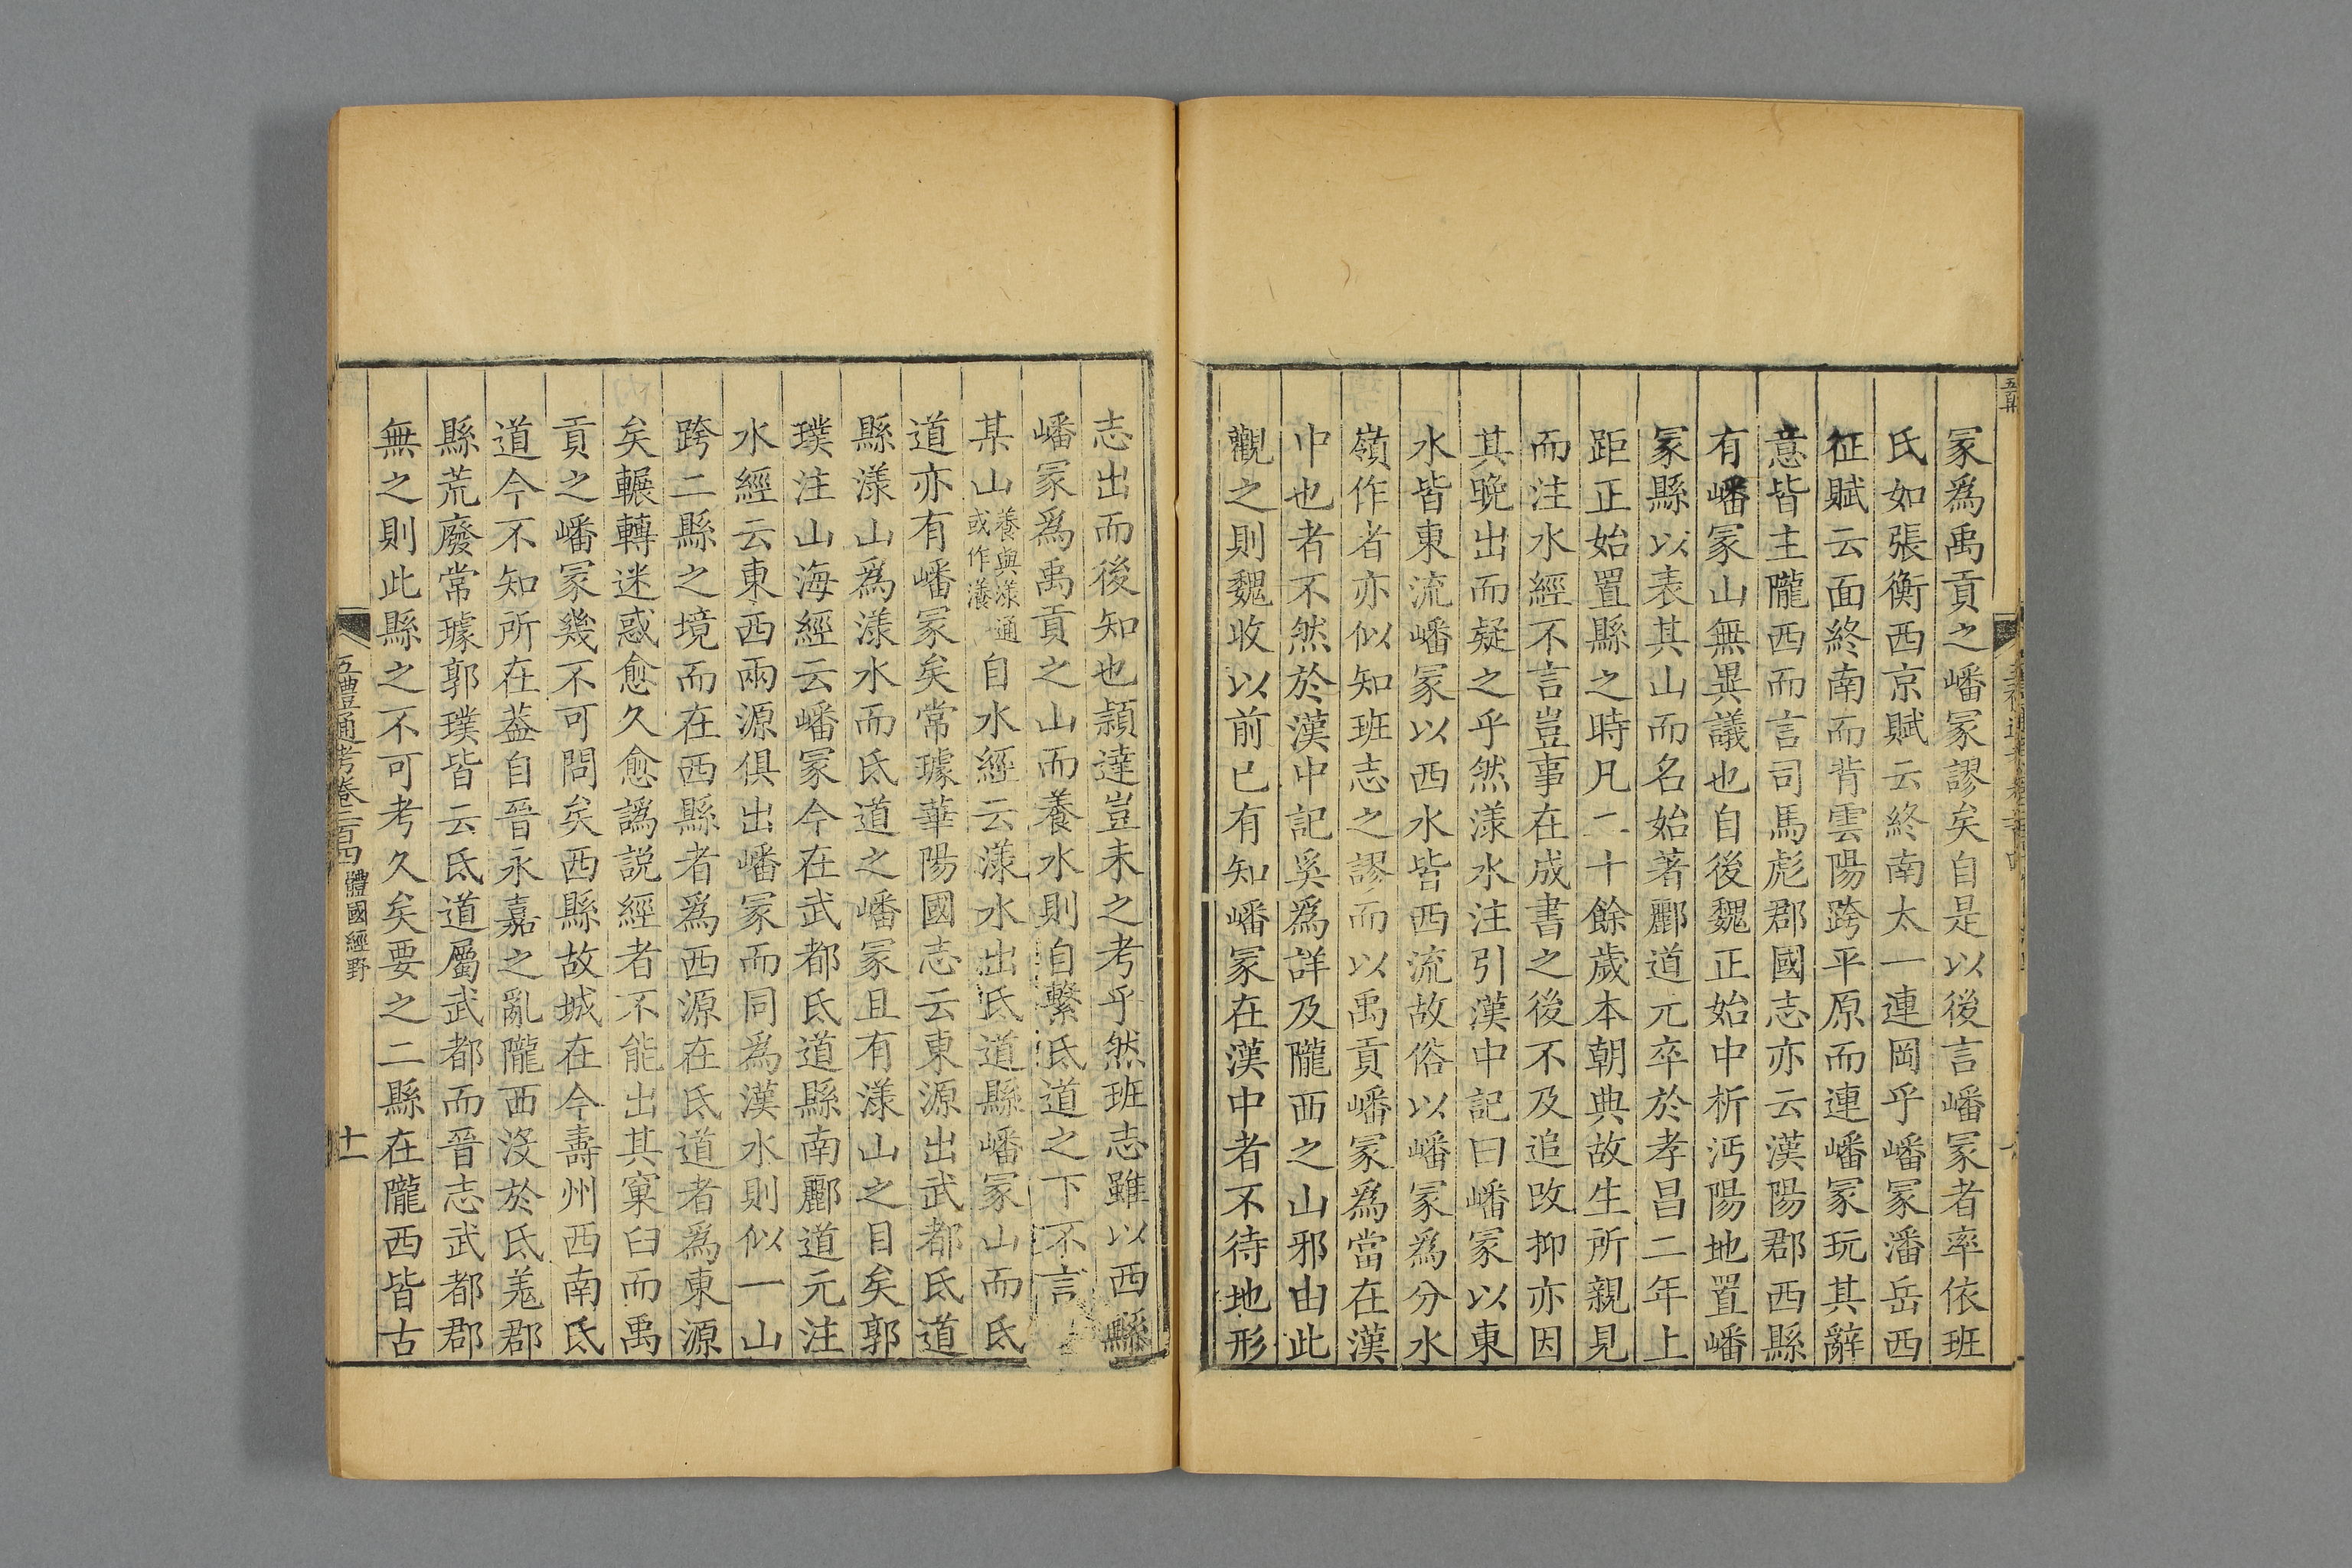 冢爲禹貢之嶓冢謬矣自是以後言嶓冢者率依班
氏如張衡西京賦云終南太一連岡乎嶓冢潘岳西
征賦云面終南而背雲陽跨平原而連嶓冢玩其辭
意皆主隴西而言司馬彪郡國志亦云漢陽郡西縣
有嶓冢山無異議也自後魏正始中析沔陽地置嶓
冢縣以表其山而名始著酈道元卒於孝昌二年上
距正始置縣之時凡二十餘歲本朝典故生所親見
而注水經不言豈事在成書之後不及追改抑亦因
其晚出而疑之乎然漾水注引漢中記曰嶓冢以東
水皆東流嶓冢以西水皆西流故俗以嶓冢爲分水
嶺作者亦似知班志之謬而以禹貢嶓冢爲當在漢
中也者不然於漢中記奚爲詳及隴西之山邪由此
觀之則魏收以前已有知嶓冢在漢中者不待地形
志出而後知也穎達豈未之考乎然班志雖以西縣
嶓冢爲禹貢之山而養水則自繫氐道之下不言
某山養與漾通或作瀁自水經云漾水出氐道縣嶓冢山而氐
道亦有嶓冢矣常璩華陽國志云東源出武都氐道
縣漾山爲漾水而氐道之嶓冢且有漾山之目矣郭
璞注山海經云嶓冢今在武都氐道縣南酈道元注
水經云東西兩源俱出嶓冢而同爲漢水則似一山
跨二縣之境而在西縣者爲西源在氐道者爲東源
矣輾轉迷惑愈久愈譌説經者不能出其窠臼而禹
貢之嶓冢幾不可問矣西縣故城在今壽州西南氐
道今不知所在葢自晉永嘉之亂隴西沒於氐羌郡
縣荒廢常璩郭璞皆云氐道屬武都而晉志武都郡
無之則此縣之不可考久矣要之二縣在隴西皆古
五禮通考卷二百四 體國經野 十一